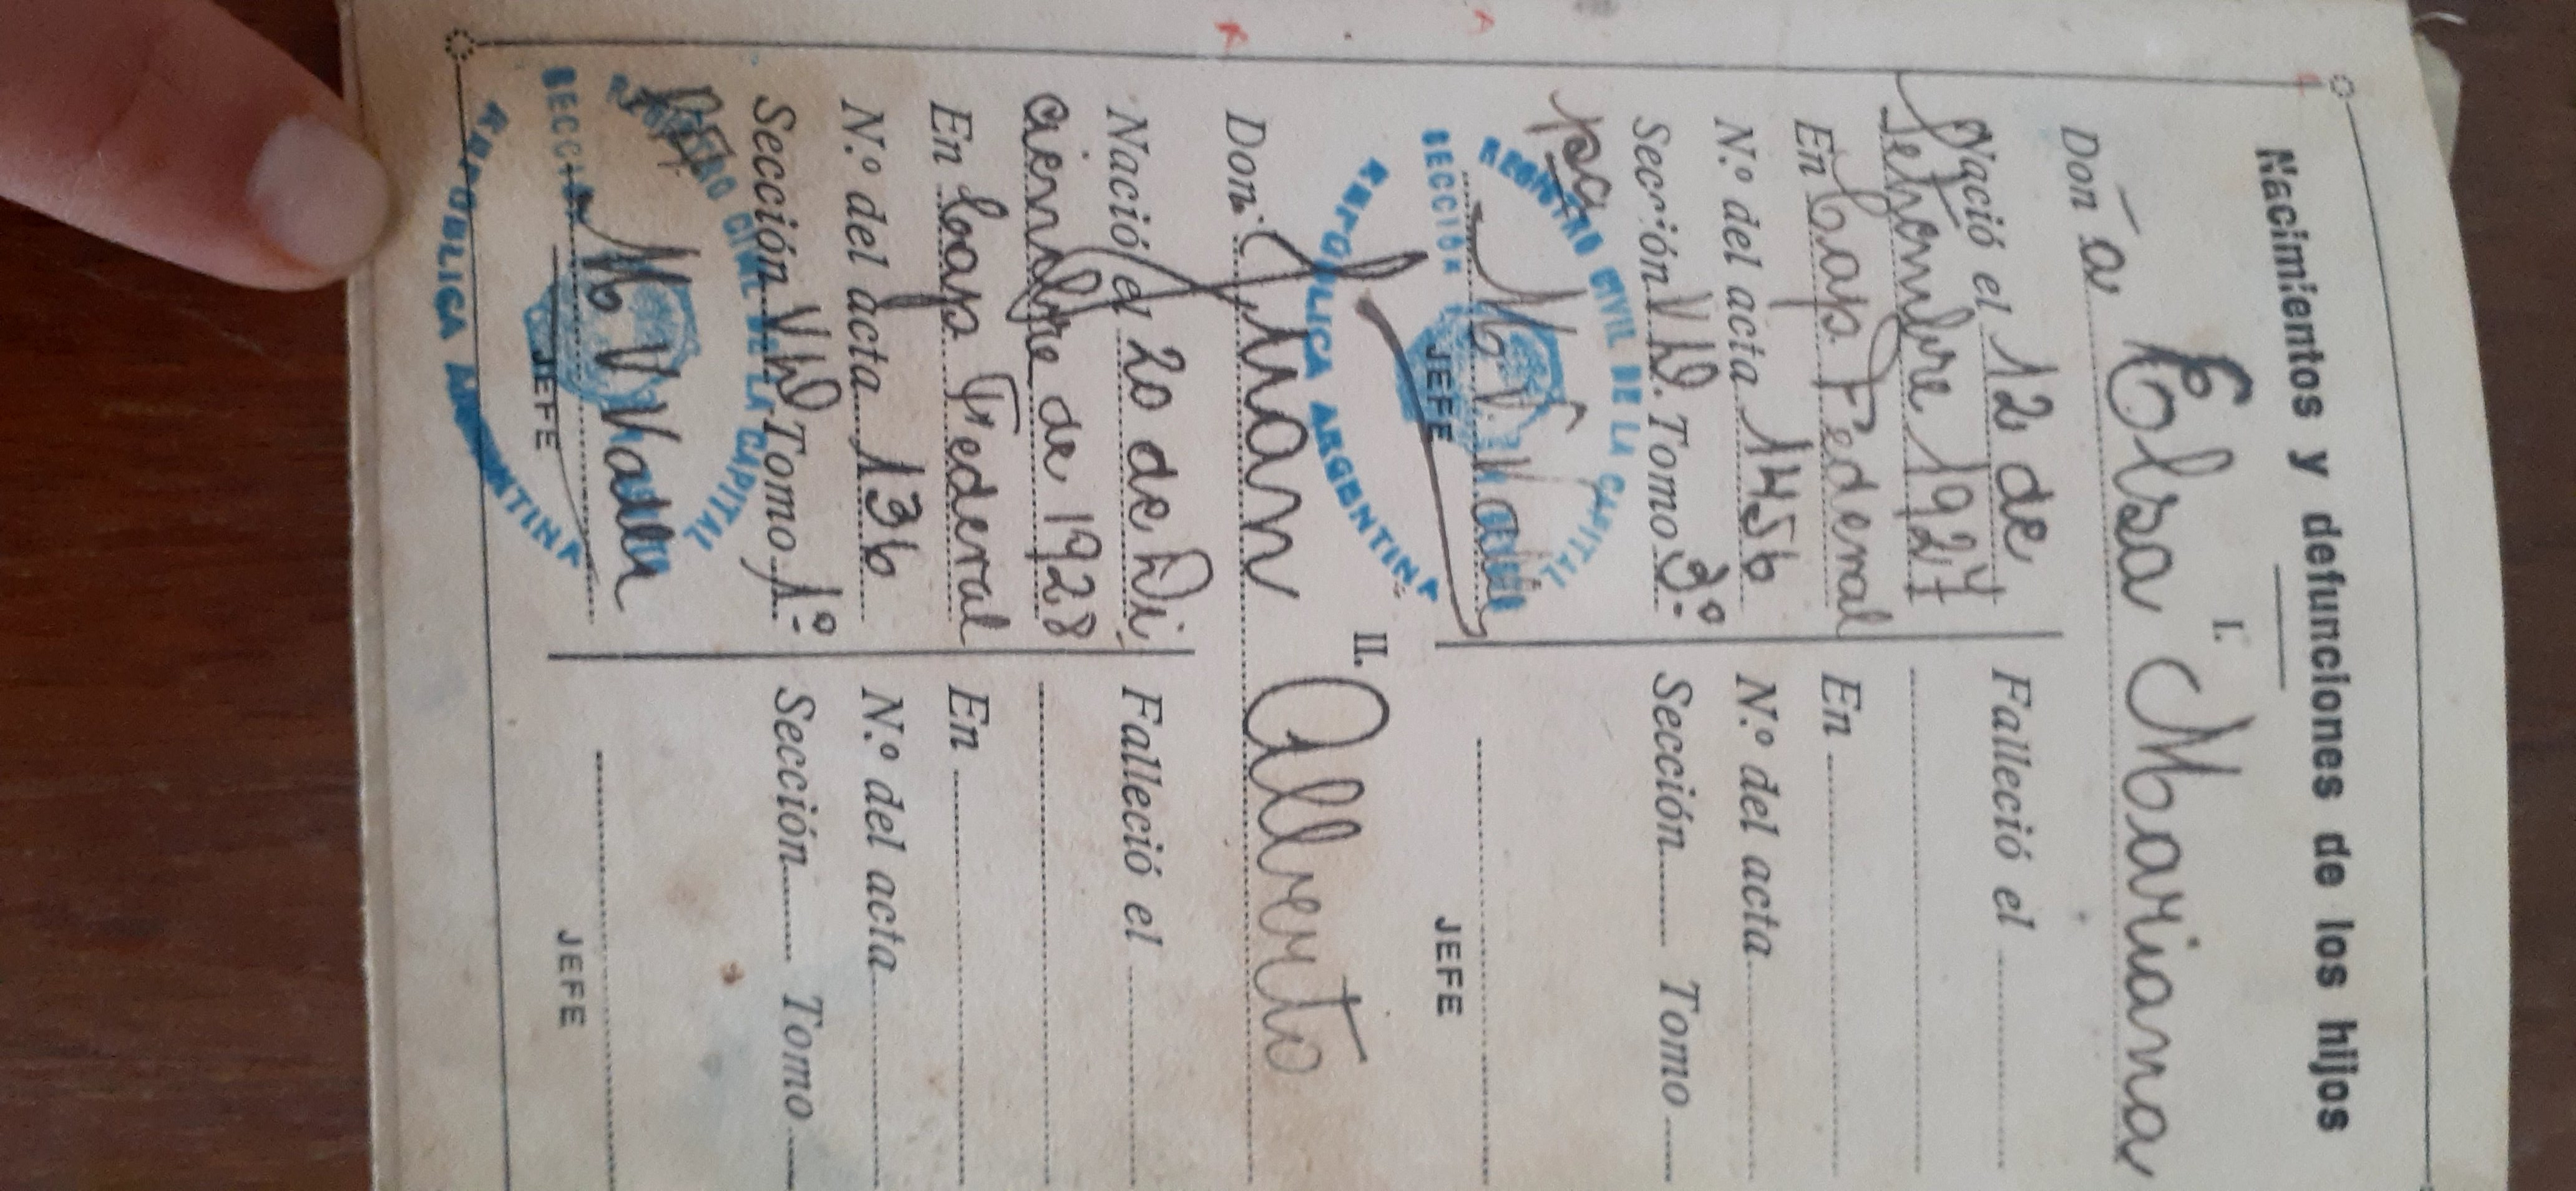 Nacimientos y defunciones de los hijos
I.
Doña Elsa Mariana
Nació el 12 de
Setiembre 1927
En Cap. Federal
N.º del acta 1456
Sección Tomo 3º
JEFE
Falleció el
En
N.º del acta
Sección Tomo
JEFE
REGISTRO CIVIL DE LA CAPITAL
SECCIÓN
REPUBLICA ARGENTINA
II.
Don Juan Alberto
Nació el 20 de Di
ciembre de 1928
En Cap. Federal
N.º del acta 136
Sección Tomo 1º
JEFE
Falleció el
En
N.º del acta
Sección Tomo
JEFE
REGISTRO CIVIL DE LA CAPITAL
SECCIÓN
REPUBLICA ARGENTINA